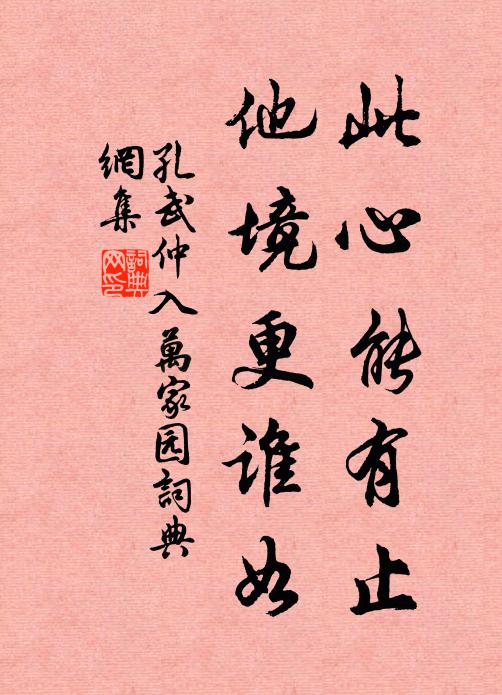 此心能有止
他境更谁如
孔武仲入萬家园詞典
網集
詞典
网印